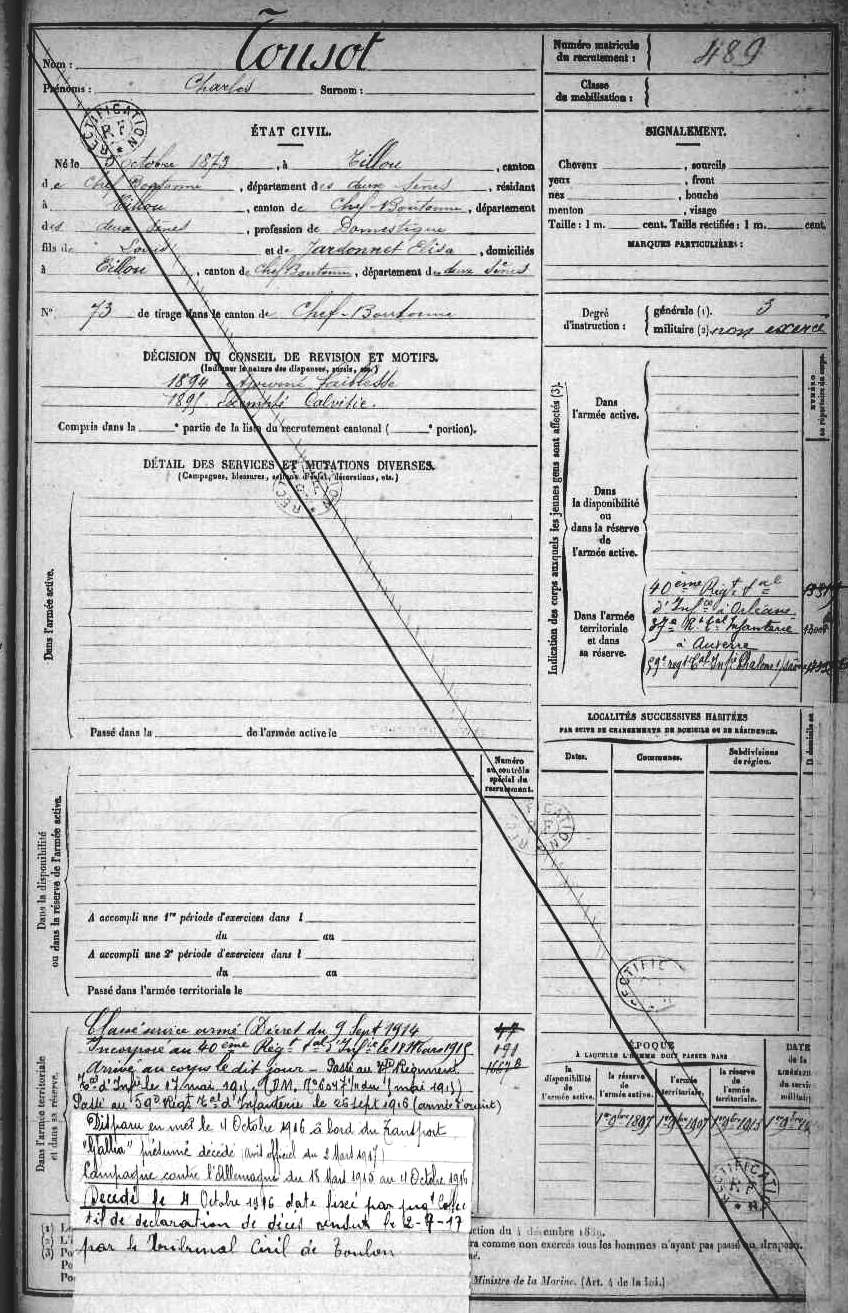 Nom : Tousot
Prénoms : Charles Surnom :
Numéro matricule du recrutement : 489
Classe de mobilisation :
RECTIFICATION RF
ÉTAT CIVIL.
Né le octobre 1873, à Tillou, canton
de Chef Boutonne, département des deux Sèvres, résidant
à Tillou, canton de Chef-Boutonne, département
des deux Sèvres, profession de Domestique
fils de Louis et de Jardonnet Elisa, domiciliés
à Tillou, canton de Chef Boutonne, département des deux Sèvres
N° 73 de tirage dans le canton de Chef-Boutonne
SIGNALEMENT.
Cheveux , sourcils
yeux , front
nez , bouche
menton , visage
Taille : 1 m. cent. Taille rectifiée : 1 m. cent.
MARQUES PARTICULIÈRES :
Degré d'instruction : générale (1). 3
militaire (2) non exercé
DÉCISION DU CONSEIL DE REVISION ET MOTIFS.
(Indiquer la nature des dispenses, sursis, etc.)
1894 Ajourné faiblesse
1895 Exempté Calvitie.
Compris dans la e partie de la liste du recrutement cantonal ( e portion).
DÉTAIL DES SERVICES ET MUTATIONS DIVERSES.
(Campagnes, blessures, actions d'éclat, décorations, etc.)
Dans l'armée active.
Passé dans la de l'armée active le
Indication des corps auxquels les jeunes gens sont affectés (3).
NUMÉRO au répertoire du corps.
Dans l'armée active.
Dans la disponibilité ou dans la réserve de l'armée active.
Dans l'armée territoriale et dans sa réserve.
40ème Régt tal
d'Infie à Orléans
37e Rt tal Infanterie
à Auxerre
59e regt tal Infie Chalons s/ Saône
LOCALITÉS SUCCESSIVES HABITÉES
PAR SUITE DE CHANGEMENTS DE DOMICILE OU DE RÉSIDENCE.
Dates. Communes. Subdivisions de région. D domicile ou
Numéro au contrôle spécial du recrutement.
Dans la disponibilité ou dans la réserve de l'armée active.
A accompli une 1re période d'exercices dans l
du au
A accompli une 2e période d'exercices dans l
du au
Passé dans l'armée territoriale le
Dans l'armée territoriale et dans sa réserve.
Classé service armé Décret du 9 Sept 1914
Incorporé au 40ème Régt tal d'Infie le 18 Mars 1915
Arrivé au corps le dit jour - Passé au Régiment
Tal d'Infie le 17 mai 1915 (DM. No 6047 du mai 1915)
Passé au 59e Régt Tal d'Infanterie le 26 sept 1916 (armée d'orient)
Disparu en mer le 4 Octobre 1916 à bord du Transport
"Gallia" présumé décédé (avis officiel du 2 Mars 1917)
Campagne contre l'Allemagne du 18 Mars 1915 au 4 Octobre 1916
Décédé le 4 Octobre 1916 date fixée par jugt Collec
tif de déclaration de décès rendu le 2-7-17
par le Tribunal Civil de Toulon
47
191
ÉPOQUE
À LAQUELLE L'HOMME DOIT PASSER DANS
la disponibilité de l'armée active.
la réserve de l'armée active.
l'armée territoriale.
la réserve de l'armée territoriale.
DATE de la libération du service militaire
1er 9bre 1897 1er 9bre 1907 1er 9bre 1913
(1) Le
(2) L'i
(3) Po
ction du 4 décembre 1889.
ra comme non exercés tous les hommes n'ayant pas passé au drapeau.
Ministre de la Marine. (Art. 4 de la loi.)